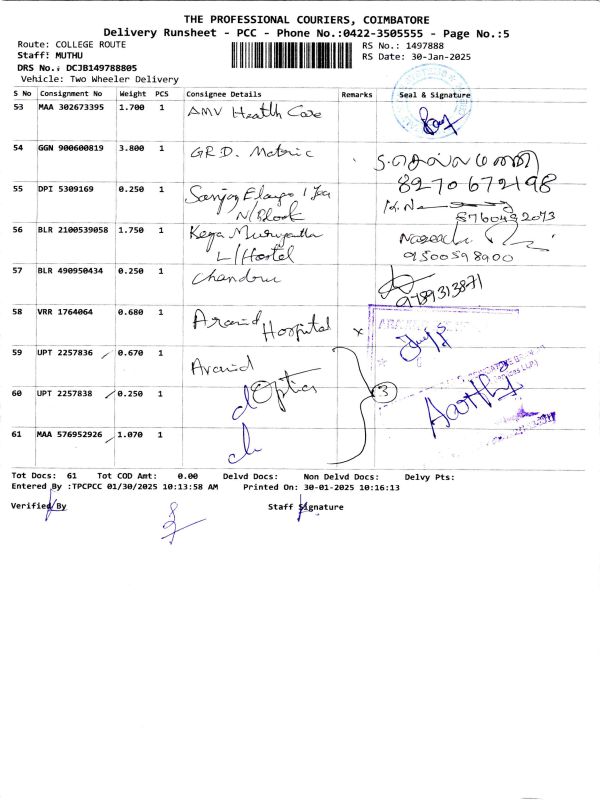 THE PROFESSIONAL COURIERS, COIMBATORE
Delivery Runsheet - PCC - Phone No.:0422-3505555 - Page No.:5
Route: COLLEGE ROUTE RS No.: 1497888
Staff: MUTHU RS Date: 30-Jan-2025
DRS No.: DCJB149788805
Vehicle: Two Wheeler Delivery
S No Consignment No Weight PCS Consignee Details Remarks Seal & Signature
53 MAA 302673395 1.700 1 AMV Health Care
54 GGN 900600819 3.800 1 G.R.D. Matric
8270672198
55 DPI 5309169 0.250 1 Sanjay
N/Block
8760492073
56 BLR 2100539058 1.750 1
L/Hostel
9500598900
57 BLR 490950434 0.250 1 Chandru
9789313871
58 VRR 1764064 0.680 1 Aravind
Hospital
59 UPT 2257836 0.670 1 Aravind
Optics
60 UPT 2257838 0.250 1 3
61 MAA 576952926 1.070 1
Tot Docs: 61 Tot COD Amt: 0.00 Delvd Docs: Non Delvd Docs: Delvy Pts:
Entered By :TPCPCC 01/30/2025 10:13:58 AM Printed On: 30-01-2025 10:16:13
Verified By Staff Signature